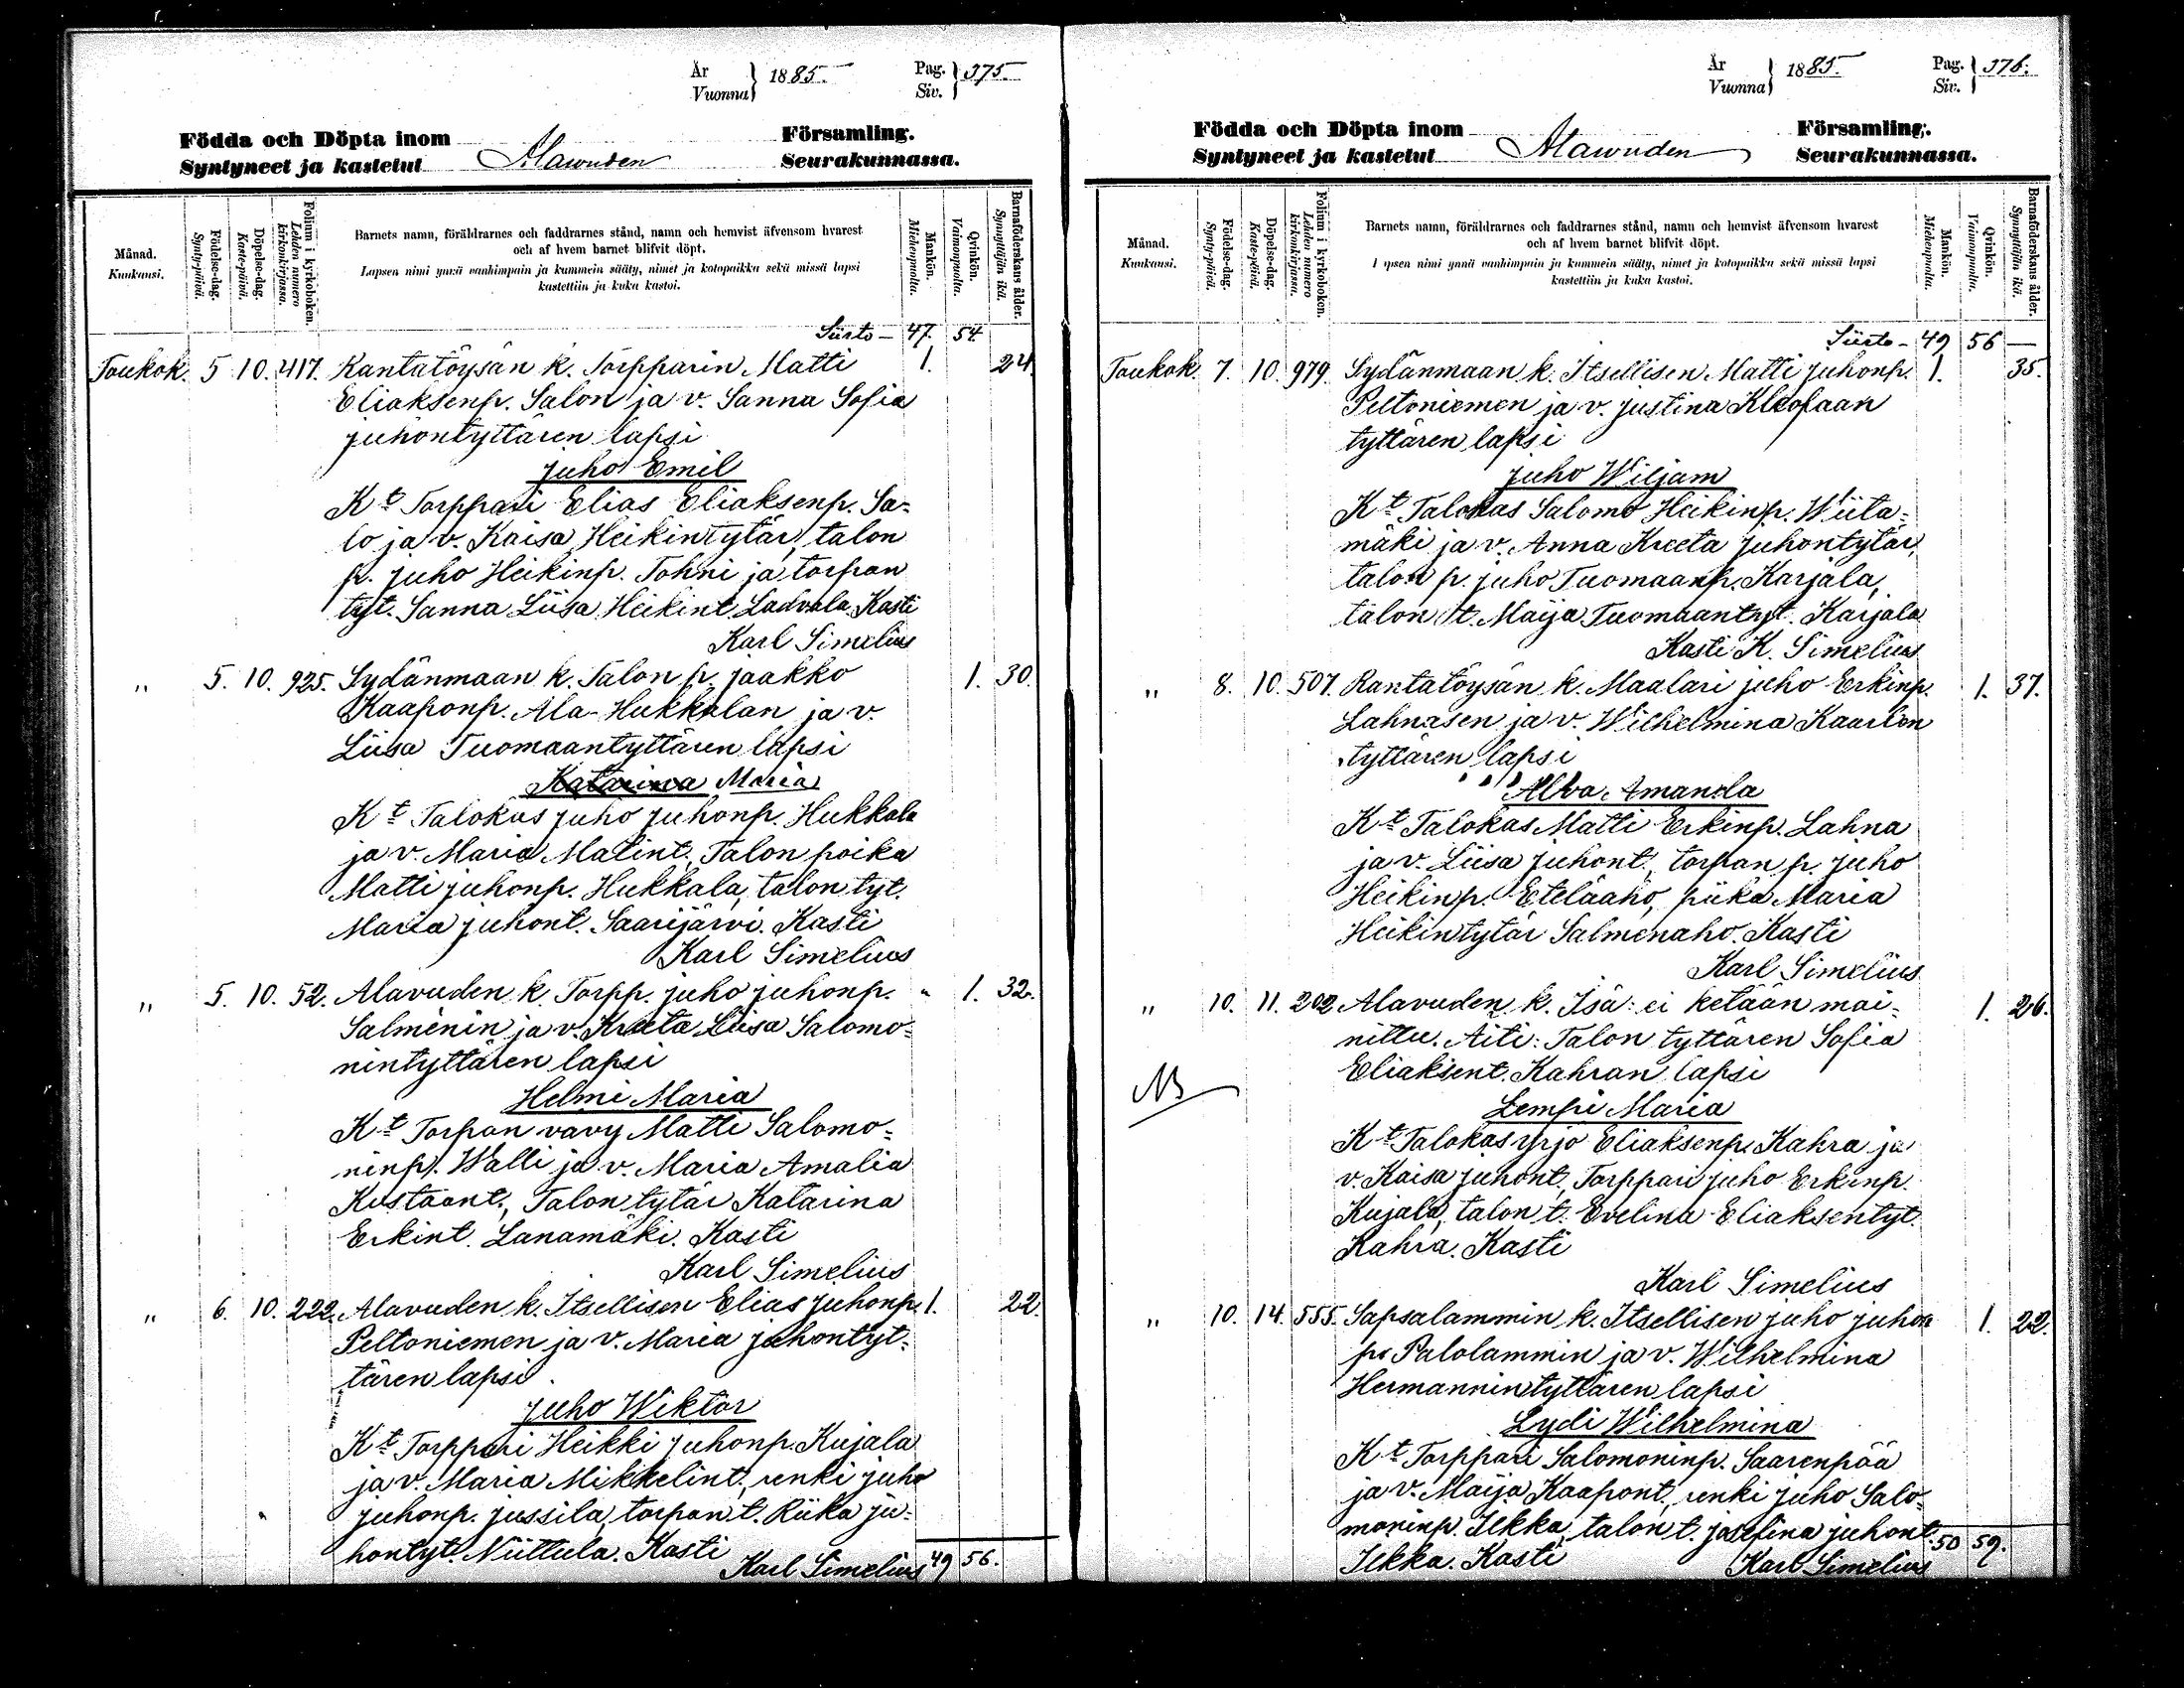 År
Vuonna } 1885.
Pag.
Siv. } 375.
Födda och Döpta inom Församling.
Syntyneet ja kastetut Alawuden Seurakunnassa.
Månad.
Kuukausi.
Födelse-dag.
Synty-päivä.
Döpelse-dag.
Kaste-päivä.
Folium i kyrkoboken.
Lehden numero
kirkonkirjassa.
Barnets namn, föräldrarnes och faddrarnes stånd, namn och hemvist äfvensom hvarest
och af hvem barnet blifvit döpt.
Lapsen nimi ynnä vanhimpain ja kummein sääty, nimet ja kotopaikka sekä missä lapsi
kastettiin ja kuka kastoi.
Mankön.
Miehenpuolta.
Qvinkön.
Vaimonpuolta.
Barnaföderskans ålder.
Synnyttäjän ikä.
Siirto - 47. 54.
Toukok. 5 10. 417. Rantatöysän k. Torpparin Matti 1. 24.
Eliaksenp. Salon ja v. Sanna Sofia
Juhontyttären lapsi
Juho Emil
Kt Torppari Elias Eliaksenp. Sa-
lo ja v. Kaisa Heikintytär, talon
p. Juho Heikinp. Tohni ja torpan
tyt. Sanna Liisa Heikint. Ladvala. Kasti
Karl Simelius
" 5. 10. 925. Sydänmaan k. Talon p. Jaakko 1. 30.
Kaaponp. Ala-Hukkalan ja v.
Liisa Tuomaantyttären lapsi
Katarina Maria
Kt Talokas Juho Juhonp. Hukkala
ja v. Maria Matint., Talon poika
Matti Juhonp. Hukkala, talon tyt.
Maria Juhont. Saarijärvi. Kasti
Karl Simelius
" 5. 10. 52. Alavuden k. Torpp. Juho Juhonp. 1. 32.
Salmenin ja v. Kreeta Liisa Salomo-
nintyttären lapsi
Helmi Maria
Kt Torpan vävy Matti Salomo-
ninp. Walli ja v. Maria Amalia
Kustaant., Talon tytär Katarina
Erkint. Lanamäki. Kasti
Karl Simelius
" 6. 10. 222. Alavuden k. Itsellisen Elias Juhonp. 1. 22.
Peltoniemen ja v. Maria Juhontyt-
tären lapsi
Juho Wiktor
Kt Torppari Heikki Juhonp. Kujala
ja v. Maria Mikkelint., renki Juho
Juhonp. Jussila, torpan t. Riika Ju-
hontyt. Niittula. Kasti
Karl Simelius 49 56.
År
Vuonna } 1885.
Pag.
Siv. } 376.
Födda och Döpta inom Församling.
Syntyneet ja kastetut Alawuden Seurakunnassa.
Månad.
Kuukausi.
Födelse-dag.
Synty-päivä.
Döpelse-dag.
Kaste-päivä.
Folium i kyrkoboken.
Lehden numero
kirkonkirjassa.
Barnets namn, föräldrarnes och faddrarnes stånd, namn och hemvist äfvensom hvarest
och af hvem barnet blifvit döpt.
Lapsen nimi ynnä vanhimpain ja kummein sääty, nimet ja kotopaikka sekä missä lapsi
kastettiin ja kuka kastoi.
Mankön.
Miehenpuolta.
Qvinkön.
Vaimonpuolta.
Barnaföderskans ålder.
Synnyttäjän ikä.
Siirto - 49 56 —
Toukok. 7. 10. 979. Sydänmaan k. Itsellisen Matti Juhonp. 1. 35.
Peltoniemen ja v. Justina Kleofaan
tyttären lapsi
Juho Wiljam
Kt Talokas Salomo Heikinp. Wiita-
mäki ja v. Anna Kreeta Juhontytär,
talon p. Juho Tuomaanp. Karjala,
talon t. Maija Tuomaantyt. Karjala
Kasti K. Simelius
" 8. 10. 507. Rantatöysän k. Maalari Juho Erkinp. 1. 37.
Lahnasen ja v. Wilhelmina Kaarlon
tyttären lapsi
Alba Amanda
Kt Talokas Matti Erkinp. Lahna
ja v. Liisa Juhont., torpan p. Juho
Heikinp. Eteläaho, piika Maria
Heikintytär Salmenaho. Kasti
Karl Simelius.
" 10. 11. 202. Alavuden k. Isä: ei ketään mai- 1. 26.
nittu. Äiti: Talon tyttären Sofia
Eliaksent. Kahran lapsi
NB
Lempi Maria
Kt Talokas Yrjö Eliaksenp. Kahra ja
v. Kaisa Juhont., Torppari Juho Erkinp.
Kujala, talon t. Evelina Eliaksentyt.
Kahra. Kasti
Karl Simelius
" 10. 14. 555. Sapsalammin k. Itsellisen Juho Juhon 1. 22.
p. Palolammin ja v. Wilhelmina
Hermannintyttären lapsi
Lydi Wilhelmina
Kt Torppari Salomoninp. Saarenpää
ja v. Maija Kaapont., renki Juho Salo-
moninp. Ilkka, talon t. Josefina Juhont.
Ilkka. Kasti Karl Simelius 50 59.